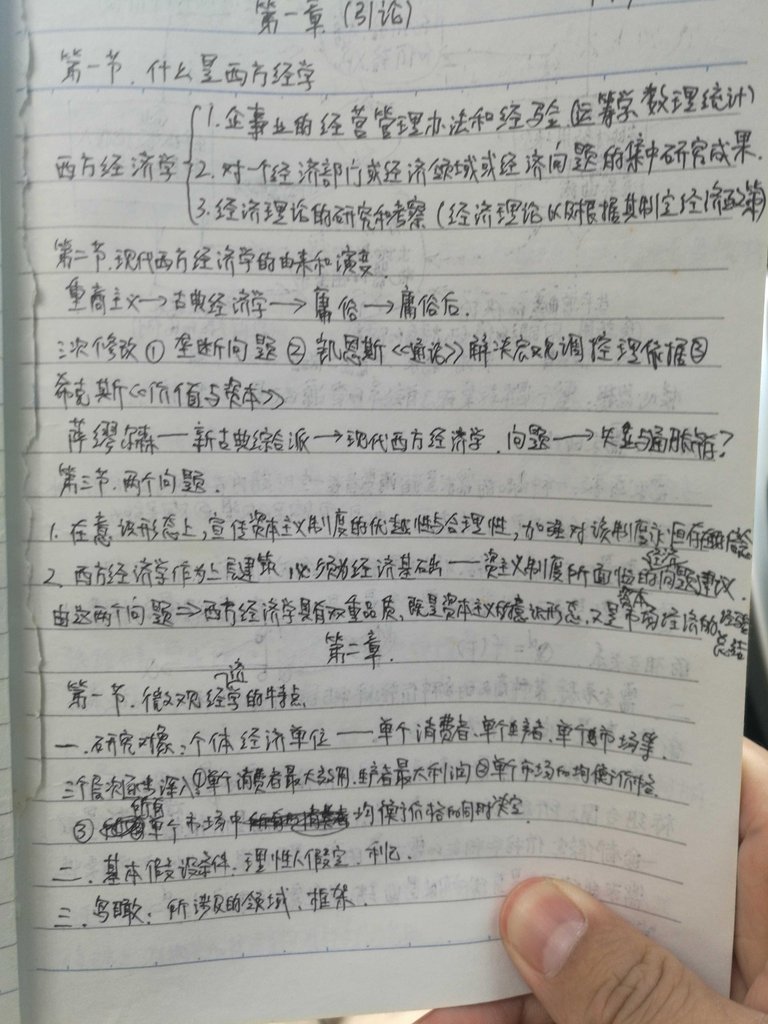 第一章 (引论)
第一节. 什么是西方经学
西方经济学
1. 企事业的经营管理办法和经验.(运筹学 数理统计)
2. 对一个经济部门或经济领域或经济问题的集中研究成果.
3. 经济理论的研究和考察 (经济理论以及根据其制定经济政策)
第二节.现代西方经济学的由来和演变.
重商主义→古典经济学→庸俗→庸俗后.
三次修改 ① 垄断问题 ② 凯恩斯《通论》解决宏观调控理依据③
希克斯《价值与资本》
萨缪尔森—新古典综合派→现代西方经济学. 问题→失业与通胀并存?
第三节. 两个问题.
1. 在意识形态上,宣传资本主义制度的优越性与合理性,加强对该制度永恒存在的信念.
2. 西方经济学作为上层建筑,必须为经济基础——资主义制度所面临的经济问题建议.
由这两个问题⇒西方经济学具有双重品质,既是资本主义的意识形态,又是资本市场经济的经验总结
第二章.
第一节. 微观经济学的特点.
一. 研究对象: 个体经济单位——单个消费者、单个生产者、单个市场等.
三个层次逐步深入 ①单个消费者最大效用,生产者最大利润 ②单个市场的均衡价格.
③ 所有单个市场中均衡价格的同时决定.
二. 基本假设条件. 理性人假定. 利己.
三. 鸟瞰: 所涉及的领域. 框架.